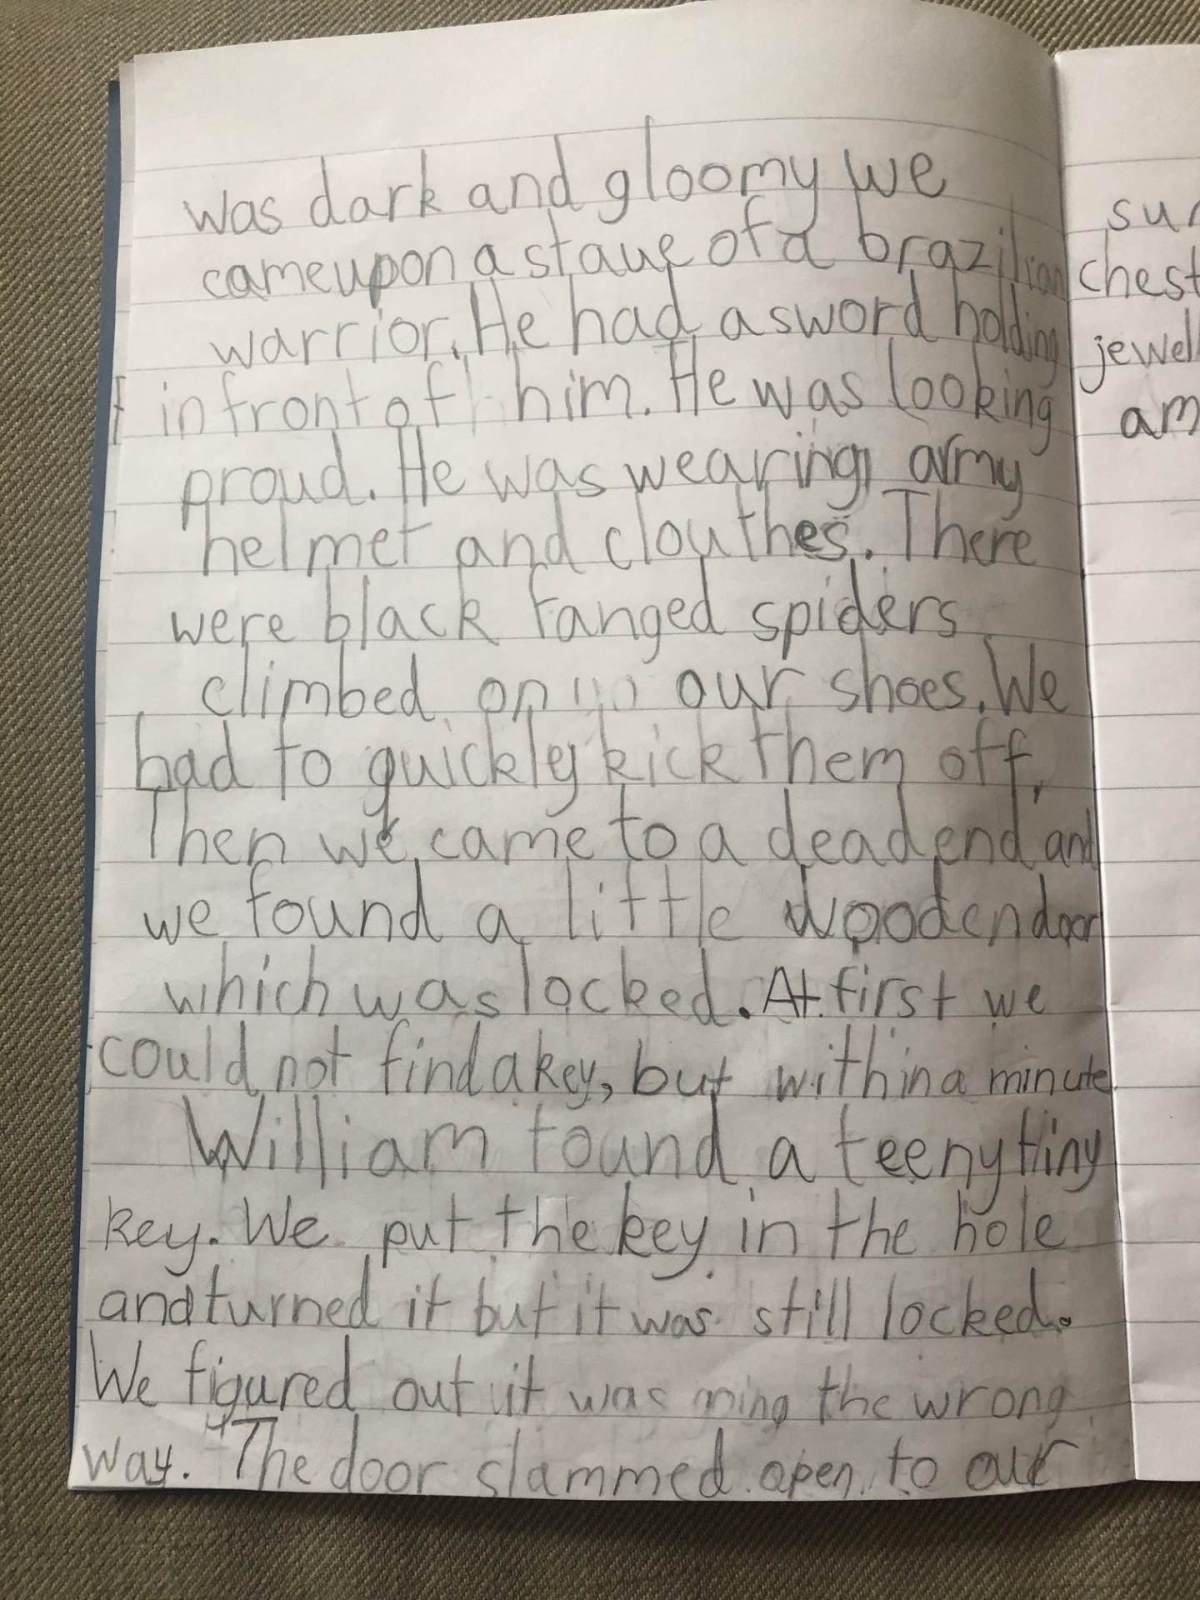 was dark and gloomy we
came upon a staue of a brazilian
warrior. He had a sword holding
in front of him. He was looking
proud. He was wearing army
helmet and clouthes. There
were black fanged spiders
climbed on our shoes. We
had to quickly kick them off.
Then we came to a dead end and
we found a little wooden door
which was locked. At first we
could not find a key, but within a minute
William found a teeny tiny
key. We put the key in the hole
and turned it but it was still locked.
We figured out it was the wrong
way. The door slammed open to our
sur
chest
jewell
am